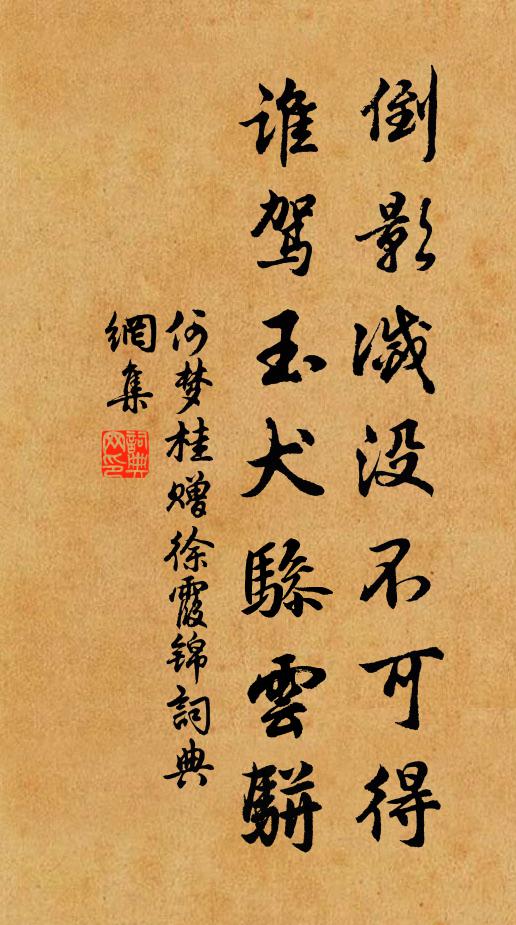 倒影滅没不可得
誰駕玉犬驂雲騈
何梦桂赠徐霞锦詞典
網集
詞典
网印